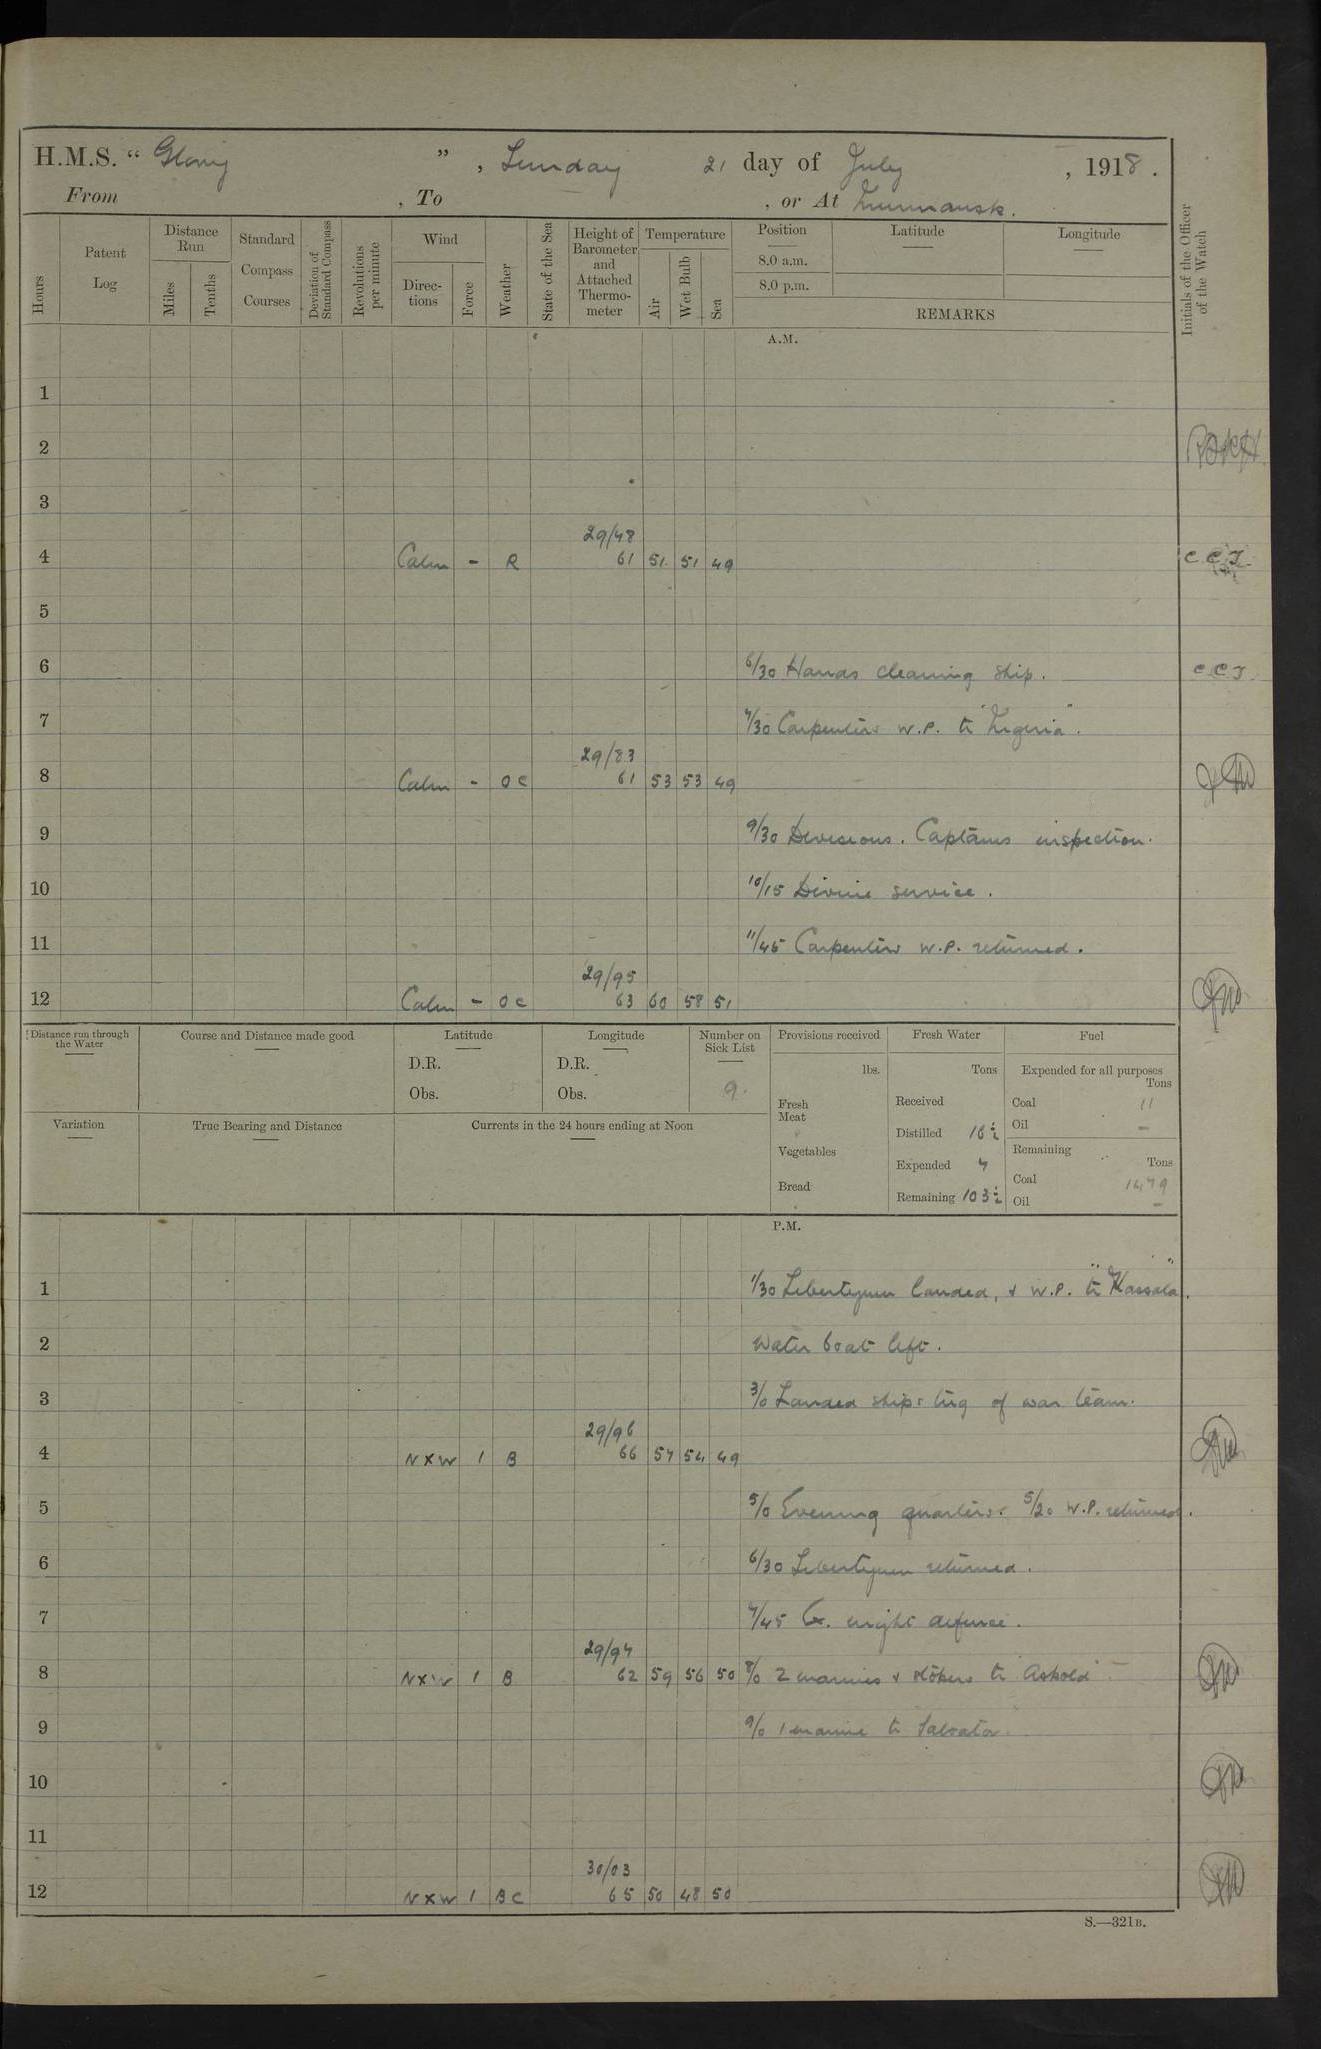 H.M.S. " Glory " , Sunday 21 day of July , 1918 .
From , To , or At Murmansk.
Hours
Patent Log
Distance Run
Miles
Tenths
Standard Compass Courses
Deviation of Standard Compass
Revolutions per minute
Wind
Directions
Force
Weather
State of the Sea
Height of Barometer and Attached Thermometer
Temperature
Air
Wet Bulb
Sea
Position
8.0 a.m.
8.0 p.m.
Latitude
Longitude
REMARKS
Initials of the Officer of the Watch
A.M.
1
2
3
29/48
4 Calm - R 61 51 51 49 C C J
5
6 6/30 Hands cleaning ship. C C J
7 7/30 Carpenters W.P. to "Nigeria".
29/83
8 Calm - O C 61 53 53 49
9 9/30 Divisions. Captains inspection.
10 10/15 Divine service.
11 11/45 Carpenters W.P. returned.
29/95
12 Calm - O C 63 60 58 51
Distance run through the Water
Course and Distance made good
Latitude
D.R.
Obs.
Longitude
D.R.
Obs.
Number on Sick List
9.
Variation
True Bearing and Distance
Currents in the 24 hours ending at Noon
Provisions received
lbs.
Fresh Meat
Vegetables
Bread
Fresh Water
Tons
Received
Distilled 16½
Expended 7
Remaining 103½
Fuel
Expended for all purposes
Tons
Coal 11
Oil -
Remaining
Tons
Coal 1479
Oil -
P.M.
1 1/30 Libertymen landed, & W.P. to "Kassala".
2 Water boat left.
3 3/0 Landed ships tug of war team.
29/96
4 N X W 1 B 66 57 54 49
5 5/0 Evening quarters. 5/20 W.P. returned.
6 6/30 Libertymen returned.
7 7/45 Ex. night defence.
29/97
8 N X W 1 B 62 59 56 50 8/0 2 marines & stokers to "Askold"
9 9/0 1 marine to Salvator
10
11
30/03
12 N X W 1 B C 65 50 48 50
S.—321B.